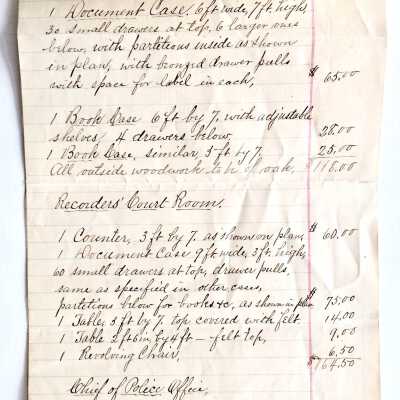 1 Document Case, 6 ft wide, 7 ft high,
30 small drawers at top, 6 larger ones
below, with partitions inside as shown
in plan, with bronzed drawer pulls
with space for label in each, $65.00
1 Book Case 6 ft by 7. with adjustable
shelves, 4 drawers below, 28.00
1 Book Case, similar, 5 ft by 7. 25.00
All outside woodwork to be of oak, $118.00
Recorders' Court Room.
1 Counter, 3 ft by 7. as shown on plan, $60.00
1 Document Case 7 ft wide, 5 ft high,
60 small drawers at top, drawer pulls,
same as specified in other cases,
partitions below for books &c, as shown in plan $75.00
1 Table, 3 ft by 7. top covered with felt. 14.00
1 Table 2 ft 6 in by 4 ft – felt top, 9.00
1 Revolving Chair, 6.50
$164.50
Chief of Police Office,